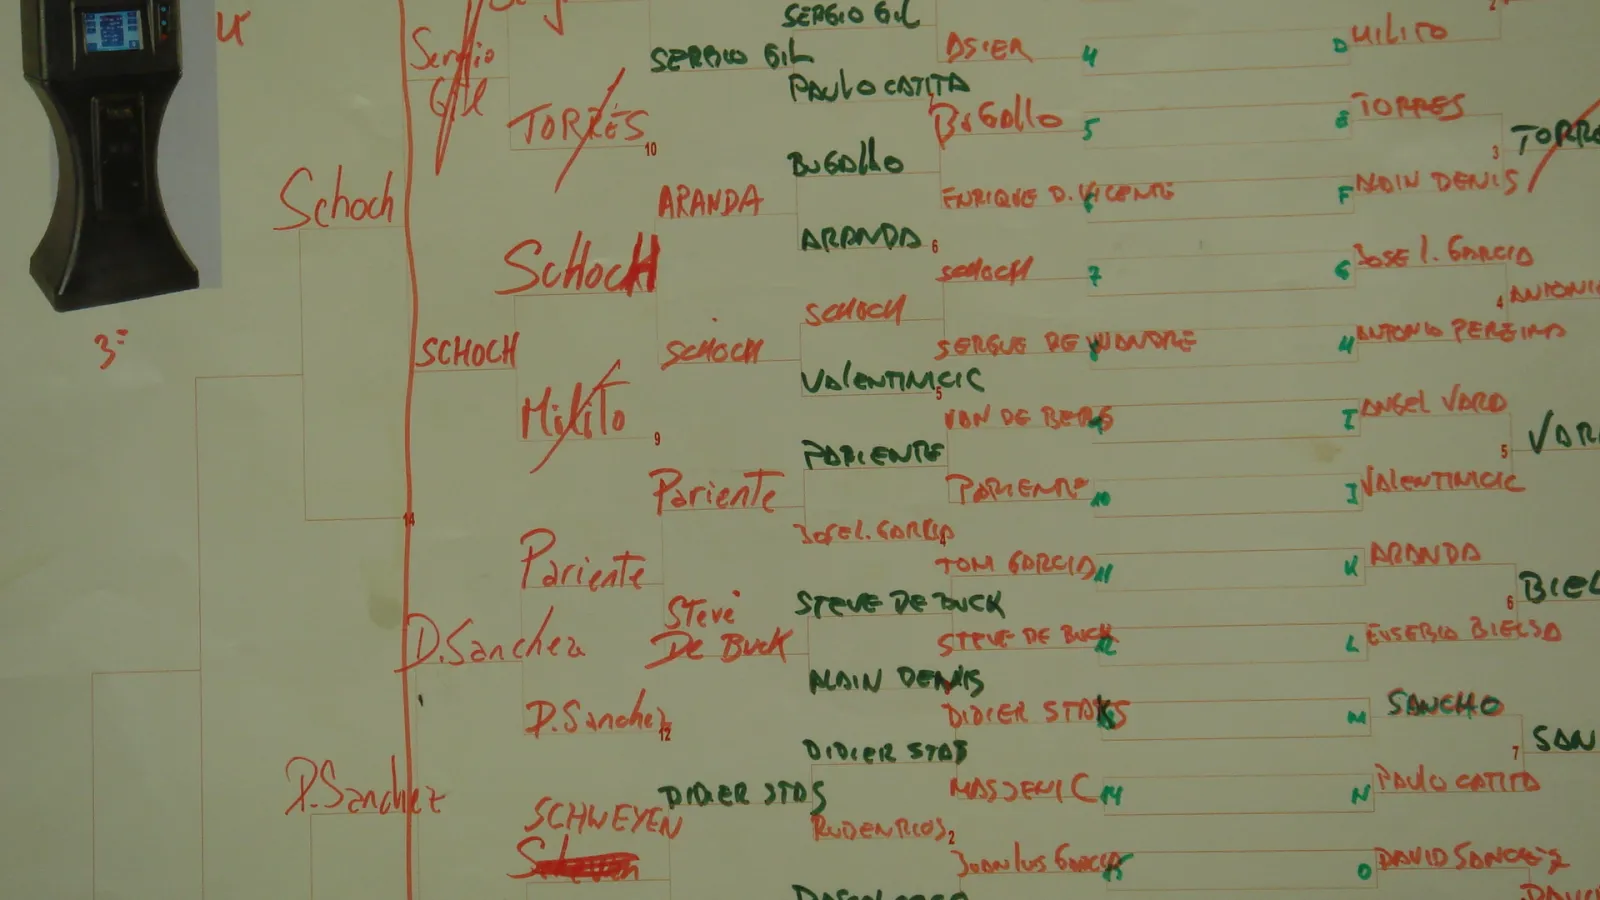 Schoch
3ª
P.Sanchez
Sergio
Gil
SCHOCH
D.Sanchez
14
TORRÉS
10
SCHOCH
MiliTo
9
Pariente
D.Sanchez
12
SCHWEYEN
SERGIO GIL
ARANDA
SCHOCH
Pariente
STeve
De Buck
DIDIER STAS
SERGIO GIL
PAULO CATITA
BUGALLO
ARANDA
6
SCHOCH
VALENTINCIC
5
PARIENTE
JOSE L. GARCIA
STEVE DE BUCK
ALAIN DENNIS
DIDIER STAS
RUDENRIOS
2
ASIER
4
BUGALLO
5
ENRIQUE D. VICENTE
SCHOCH
7
VAN DE BERG
PARIENTE
10
TONI GARCIA
11
STEVE DE BUCK
12
DIDIER STAS
MASSENIC
14
JUAN LUIS GARCIA
15
D
MILITO
2
E
TORRES
3
TORRE
F
ALAIN DENIS
G
JOSE L. GARCIA
4
ANTONIO
H
ANTONIO PEREIRA
I
ANGEL VARA
5
VAR
J
VALENTINCIC
K
ARANDA
6
BIEL
L
EUSEBIO BIELSA
M
SANCHO
7
SAN
N
PAULO CATITA
O
DAVID SANCHEZ